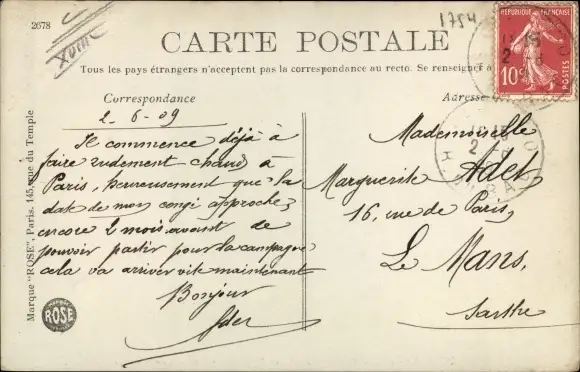 2678
XVIII
1754
CARTE POSTALE
Tous les pays étrangers n'acceptent pas la correspondance au recto. Se renseigner
REPUBLIQUE FRANÇAISE
10
POSTES
Correspondance
Adresse
2-6-09
Il commence déjà à
faire rudement chaud à
Paris, heureusement que la
date de mon congé approche,
encore 2 mois avant de
pouvoir partir pour la campagne
cela va arriver vite maintenant
Bonjour
Mademoiselle
Marguerite Adet
16, rue de Paris,
Le Mans,
Sarthe
Marque "ROSE", Paris. 145, rue du Temple
ROSE